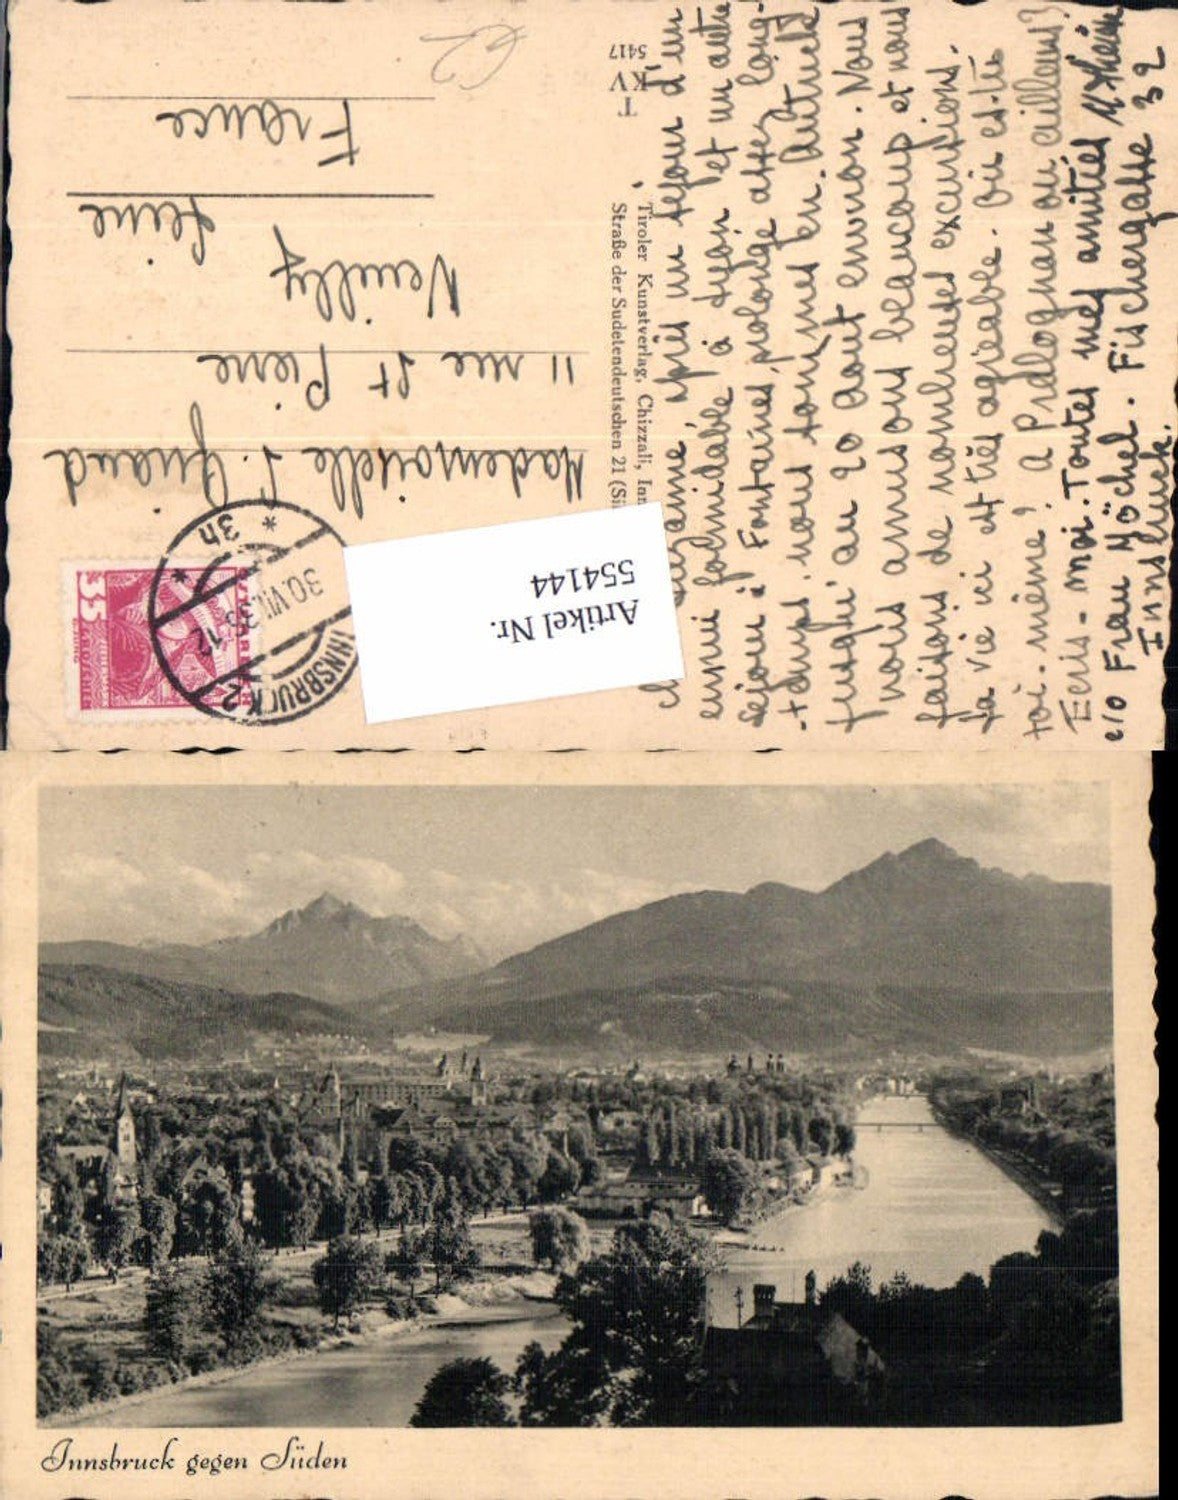 Chère Suzanne, après un séjour d'un
ennui formidable à Dijon et un autre
séjour à Fontaines, prolongé assez long-
-temps, nous sommes en Autriche
jusqu'au 20 août environ. Nous
nous amusons beaucoup et nous
faisons de nombreuses excursions.
La vie ici est très agréable. Où es-tu
toi-même? à Pralognan ou ailleurs?
Ecris-moi. Toutes mes amitiés
c/o Frau Höchel. Fischergasse 32
Innsbruck.
Tiroler Kunstverlag, Chizzali, Inn
Straße der Sudetendeutschen 21 (Si
T
KV
5417
Mademoiselle S.
11 rue St Pierre
Neuilly
Seine
France
INNSBRUCK 2
30.VII.36.12
3h
35
GROSCHEN
ÖSTERREICH
Artikel Nr.
554144
Innsbruck gegen Süden